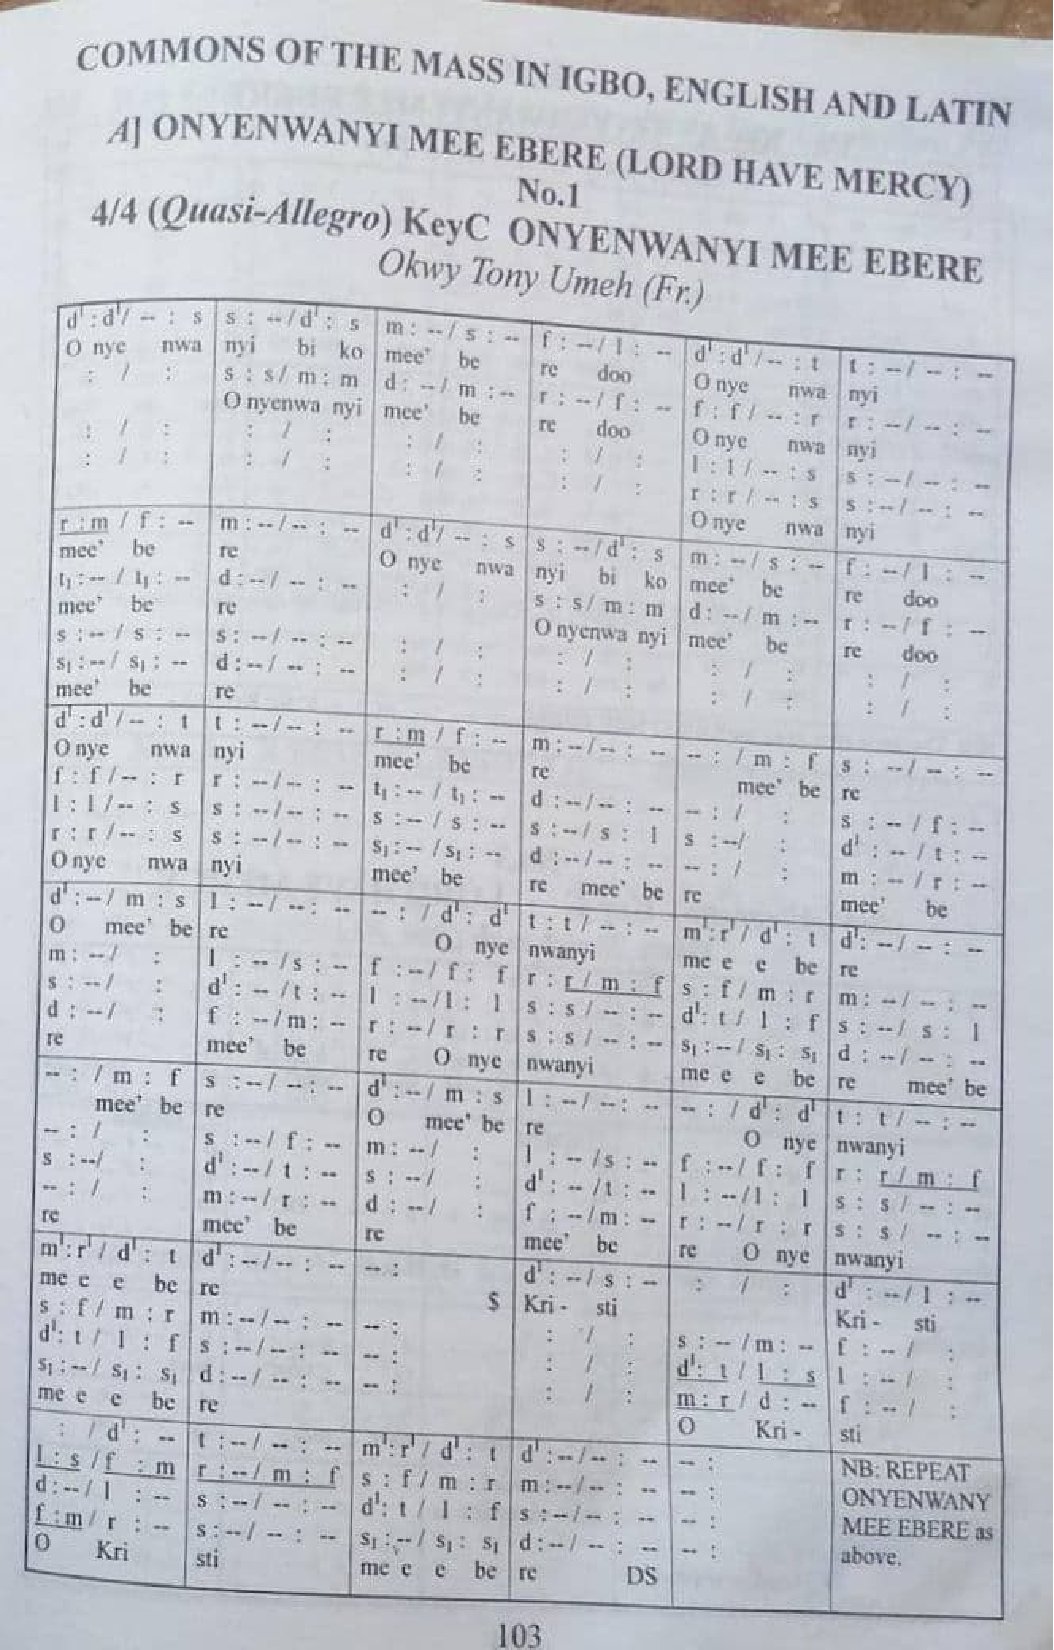 COMMONS OF THE MASS IN IGBO, ENGLISH AND LATIN
A] ONYENWANYI MEE EBERE (LORD HAVE MERCY)
No.1
4/4 (Quasi-Allegro) KeyC ONYENWANYI MEE EBERE
Okwy Tony Umeh (Fr.)
d¹ : d¹/ -- : s
O nye nwa
: / :
: / :
: / :
s : --/d¹ : s
nyi bi ko
s : s/ m : m
O nyenwa nyi
: / :
: / :
m : --/ s : --
mee' be
d : --/ m : --
mee' be
: / :
: / :
f : --/ l : --
re doo
r : --/ f : --
re doo
: / :
: / :
d¹ : d¹/ -- : t
O nye nwa
f : f / -- : r
O nye nwa
l : l / -- : s
r : r / -- : s
O nye nwa
t : --/ -- : --
nyi
r : --/ -- : --
nyi
s : --/ -- : --
s : --/ -- : --
nyi
r : m / f : --
mee' be
t₁ : -- / t₁ : --
mee' be
s : -- / s : --
s₁ : --/ s₁ : --
mee' be
m : --/ -- : --
re
d : --/ -- : --
re
s : --/ -- : --
d : --/ -- : --
re
d¹ : d¹/ -- : s
O nye nwa
: / :
: / :
: / :
s : --/d¹ : s
nyi bi ko
s : s/ m : m
O nyenwa nyi
: / :
: / :
m : --/ s : --
mee' be
d : --/ m : --
mee' be
: / :
: / :
f : --/ l : --
re doo
r : --/ f : --
re doo
: / :
: / :
d¹ : d¹/ -- : t
O nye nwa
f : f / -- : r
l : l / -- : s
r : r / -- : s
O nye nwa
t : --/ -- : --
nyi
r : --/ -- : --
s : --/ -- : --
s : --/ -- : --
nyi
r : m / f : --
mee' be
t₁ : -- / t₁ : --
s : -- / s : --
s₁ : -- / s₁ : --
mee' be
m : --/ -- : --
re
d : --/ -- : --
s : --/ s : l
d : --/ -- : --
re mee' be
-- : / m : f
mee' be
-- : / :
s : --/ :
-- : / :
re
s : --/ -- : --
re
s : --/ f : --
d¹ : -- / t : --
m : -- / r : --
mee' be
d¹ : --/ m : s
O mee' be
m : --/ :
s : --/ :
d : --/ :
re
l : --/ -- : --
re
l : --/s : --
d¹ : -- /t : --
f : --/m : --
mee' be
-- : / d¹ : d¹
O nye
f : --/ f : f
l : --/l : l
r : --/ r : r
re O nye
t : t / -- : --
nwanyi
r : r / m : f
s : s / -- : --
s : s / -- : --
nwanyi
m¹ : r¹ / d¹ : t
me e e be
s : f / m : r
d¹ : t / l : f
s₁ : --/ s₁ : s₁
me e e be
d¹ : --/ -- : --
re
m : --/ -- : --
s : --/ s : l
d : --/ -- : --
re mee' be
-- : / m : f
mee' be
-- : / :
s : --/ :
-- : / :
re
s : --/ -- : --
re
s : --/ f : --
d¹ : --/ t : --
m : --/ r : --
mee' be
d¹ : --/ m : s
O mee' be
m : --/ :
s : --/ :
d : --/ :
re
l : --/ -- : --
re
l : -- /s : --
d¹ : -- /t : --
f : --/m : --
mee' be
-- : / d¹ : d¹
O nye
f : --/ f : f
l : --/l : l
r : --/ r : r
re O nye
t : t / -- : --
nwanyi
r : r / m : f
s : s / -- : --
s : s / -- : --
nwanyi
m¹ : r¹ / d¹ : t
me e e be
s : f / m : r
d¹ : t / l : f
s₁ : --/ s₁ : s₁
me e e be
d¹ : --/ -- : --
re
m : --/ -- : --
s : --/ -- : --
d : --/ -- : --
re
-- :
$
-- :
-- :
-- :
d¹ : --/ s : --
Kri - sti
: / :
: / :
: / :
: / :
s : -- /m : --
d¹ : t / l : s
m : r / d : --
O Kri -
d¹ : --/ l : --
Kri - sti
f : -- / :
l : -- / :
f : -- / :
sti
: / d¹ : --
l : s / f : m
d : --/ l : --
f : m / r : --
O Kri
t : --/ -- : --
r : --/ m : f
s : --/ -- : --
s : --/ -- : --
sti
m¹ : r¹ / d¹ : t
s : f / m : r
d¹ : t / l : f
s₁ : --/ s₁ : s₁
me e e be
d¹ : --/ -- : --
m : --/ -- : --
s : --/ -- : --
d : --/ -- : --
re DS
-- :
-- :
-- :
-- :
NB: REPEAT
ONYENWANY
MEE EBERE as
above.
103